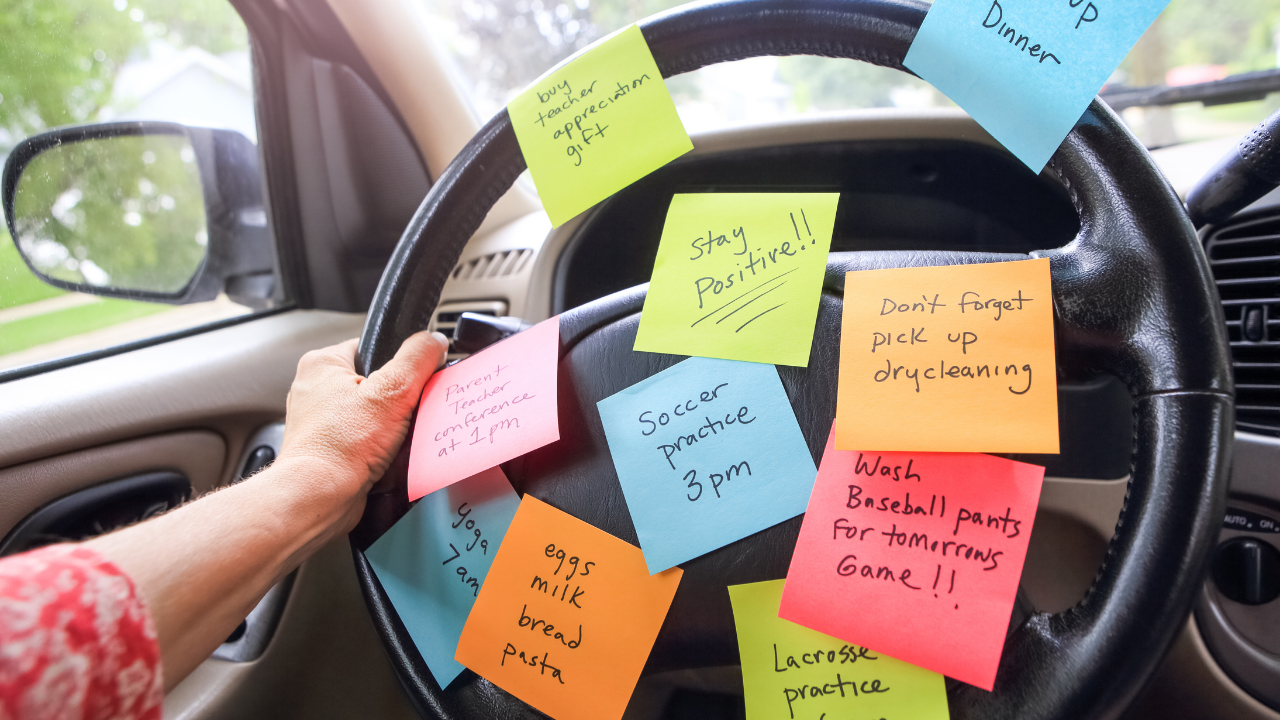 up
Dinner
buy
teacher
appreciation
gift
Stay
Positive!!
Don't forget
pick up
drycleaning
Parent
Teacher
conference
at 1pm
Soccer
practice
3pm
Wash
Baseball pants
for tomorrows
Game!!
yoga
7am
eggs
milk
bread
pasta
Lacrosse
practice
AUTO
ON